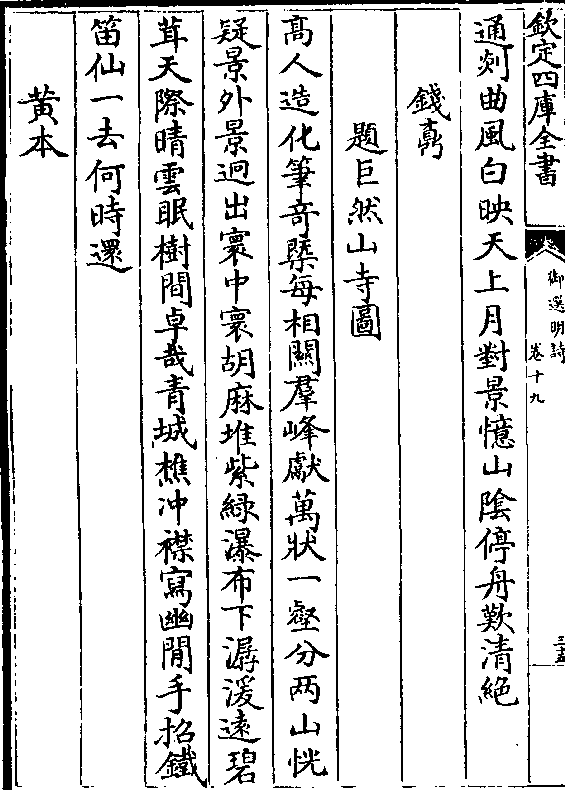 欽定四庫全書
御選明詩
卷十九
三十五
通剡曲風白映天上月對景憶山陰停舟歎清絶
錢鼒
題巨然山寺圖
髙人造化筆竒槩每相關羣峰獻萬狀一壑分两山恍
疑景外景迥出寰中寰胡麻堆紫緑瀑布下潺湲逺碧
茸天際晴雲眠樹間卓哉青城樵冲襟寫幽閒手招鐵
笛仙一去何時還
黄本